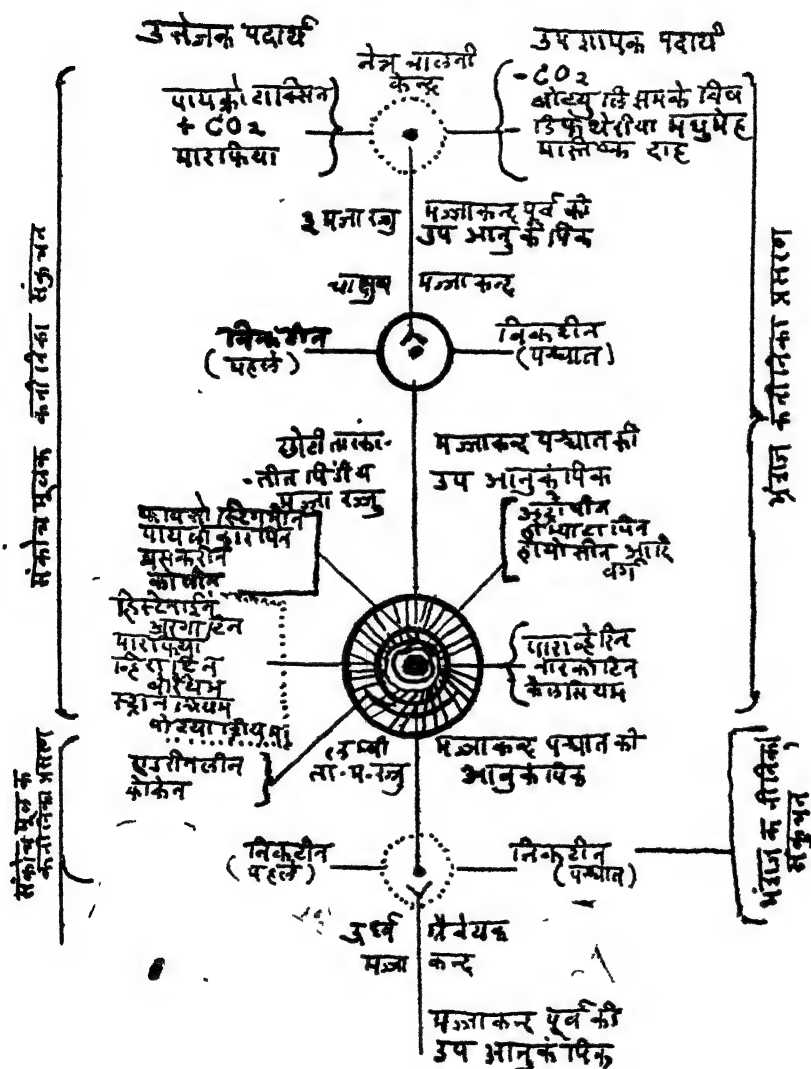 उत्तेजक पदार्थ
उपशामक पदार्थ
नेत्र चालनी
केन्द्र
पायक्रोटाक्सिन
+ CO2
मारफिया
- CO2
बोटयुलिसमके विष
डिफ्थेरीया मधुमेह
मास्तिष्क दाह
३ मजा रज्जु
मज्जाकन्द पूर्व की
उप आनुकंपिक
चाक्षुष मज्जा कन्द
निकटीन
(पहले)
निकटीन
(पश्चात)
छोटी तारका-
-तीत पिंडीय
मज्जा रज्जु
मज्जाकन्द पश्चात की
उप आनुकंपिक
फायसोस्टिगमीन
पायलोकारपिन
मसकरीन
कोलीन
अट्रोपीन
होमाट्रोपिन
हायोसीन आदि
वर्ग
हिस्टेमाईन
अरगाटिन
मारफिया
व्हिराट्रिन
बेरियम
स्ट्रानशियम
पापाव्हेरिन
नारकोटिन
कैलसियम
एडरीनलीन
कोकेन
लंबी
ता.म.रज्जु
मज्जाकन्द पश्चात की
आनुकंपिक
निकटीन
(पहले)
निकटीन
(पश्चात)
उर्ध्व ग्रैवेयक
मज्जा कन्द
मज्जाकन्द पूर्व की
उप आनुकंपिक
संकोच मूलक कनीनिका संकुचन
संकोच मूलक
कनीनिका प्रसरण
भ्रंशज कनीनिका प्रसरण
भ्रंशज कनीनिका
संकुचन